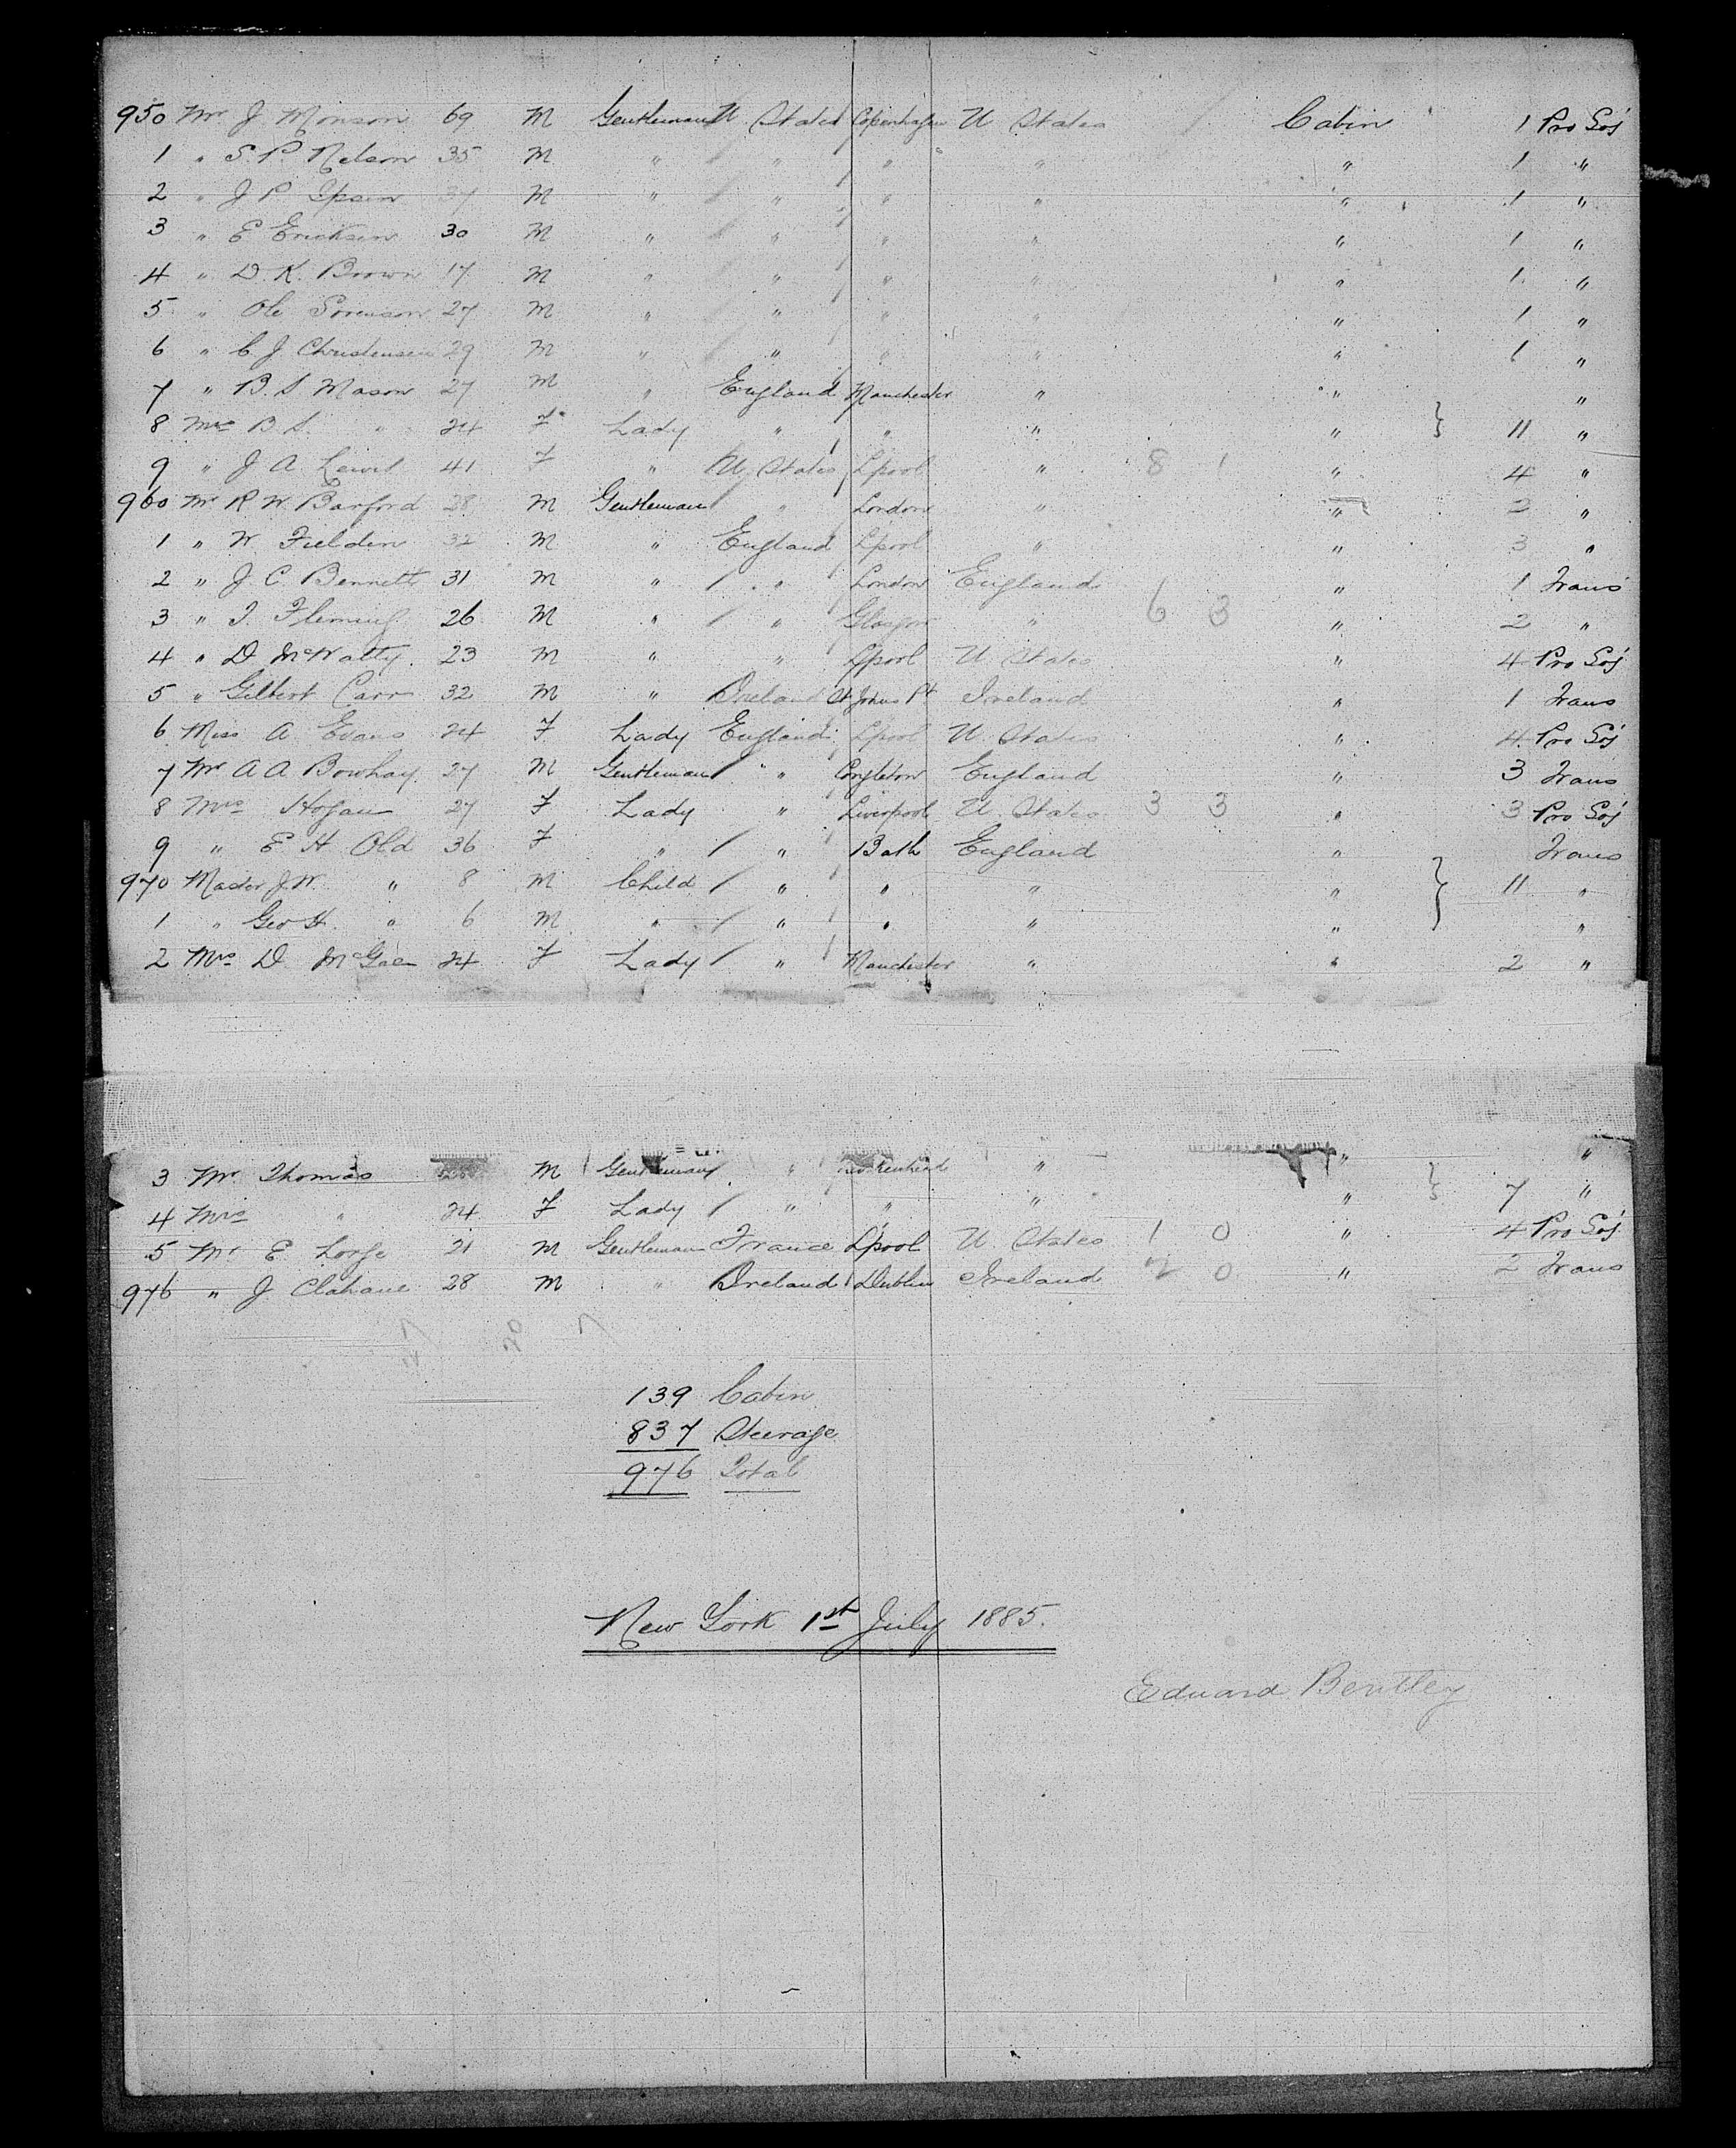 950 Mr J Monson 69 M Gentleman U. States Copenhagen U States Cabin 1 Pro Soj
1 " S. P. Nelson 35 M " " " " " 1 "
2 " J P Ipsen 37 M " " " " " 1 "
3 " E Ericksen 30 M " " " " " 1 "
4 " D. K. Brown 17 M " " " " " 1 "
5 " Ole Sorenson 27 M " " " " " 1 "
6 " C. J Christensen 29 M " " " " " 1 "
7 " B. S Mason 27 M " England Manchester " " "
8 Mrs B S. " 24 F Lady " " " " 11 "
9 " J A Lewis 41 F " U. States Lpool " 8 1 " 4 "
960 Mr R W. Barford 28 M Gentleman " London " " 2 "
1 " W. Fielden 32 M " England Lpool " " 3 "
2 " J. C. Bennett 31 M " " London England " 1 Trans
3 " J. Fleming 26 M " " Glasgow " 6 3 " 2 "
4 " D McNatty. 23 M " " Lpool U States " 4 Pro Soj
5 " Gilbert Carr 32 M " Ireland St Johns Pt Ireland " 1 Trans
6 Miss A. Evans 24 F Lady England Lpool U. States " 4 Pro Soj
7 Mr A A Bowhay. 27 M Gentleman " Congleton England " 3 Trans
8 Mrs Hogan 27 F Lady " Liverpool U. States 3 3 " 3 Pro Soj
9 " E H Old 36 F " " Bath England " Trans
970 Master J. W. " 8 M Child " " " " 11 "
1 " Geo H. " 6 M " " " " " "
2 Mrs D McGae 24 F Lady " Manchester " " 2 "
3 Mr Thomas M Gentleman " " " "
4 Mrs " 24 F Lady " " " " 7 "
5 Mr E Lorge 21 M Gentleman France Lpool U. States 1 0 " 4 Pro Soj
976 " J Clahane 28 M " Ireland Dublin Ireland 2 0 " 2 Trans
27 20 7
139 Cabin
837 Steerage
976 Total
New York 1st July 1885.
Edward Bentley